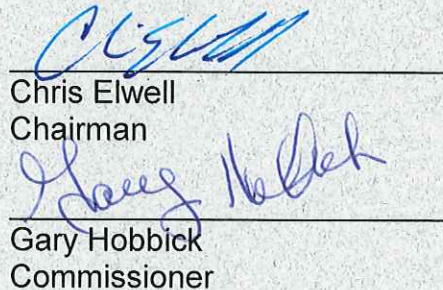 Chris Elwell
Chairman
Gary Hobbick
Gary Hobbick
Commissioner